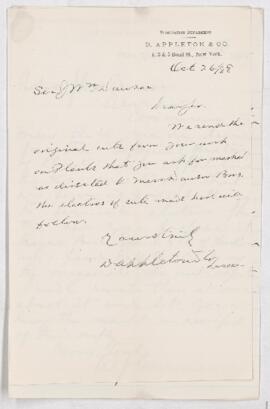 D. APPLETON & CO.
1, 3 & 5 Bond St., New York.
Oct 26/89
Sir J Wm Dawson
Dear Sir
We send the
original cuts from your work
on Plants that you ask for marked
as directed to Messrs Dawson Bros.
the electros of cuts made here will
follow.
Yours truly
D Appleton & Co